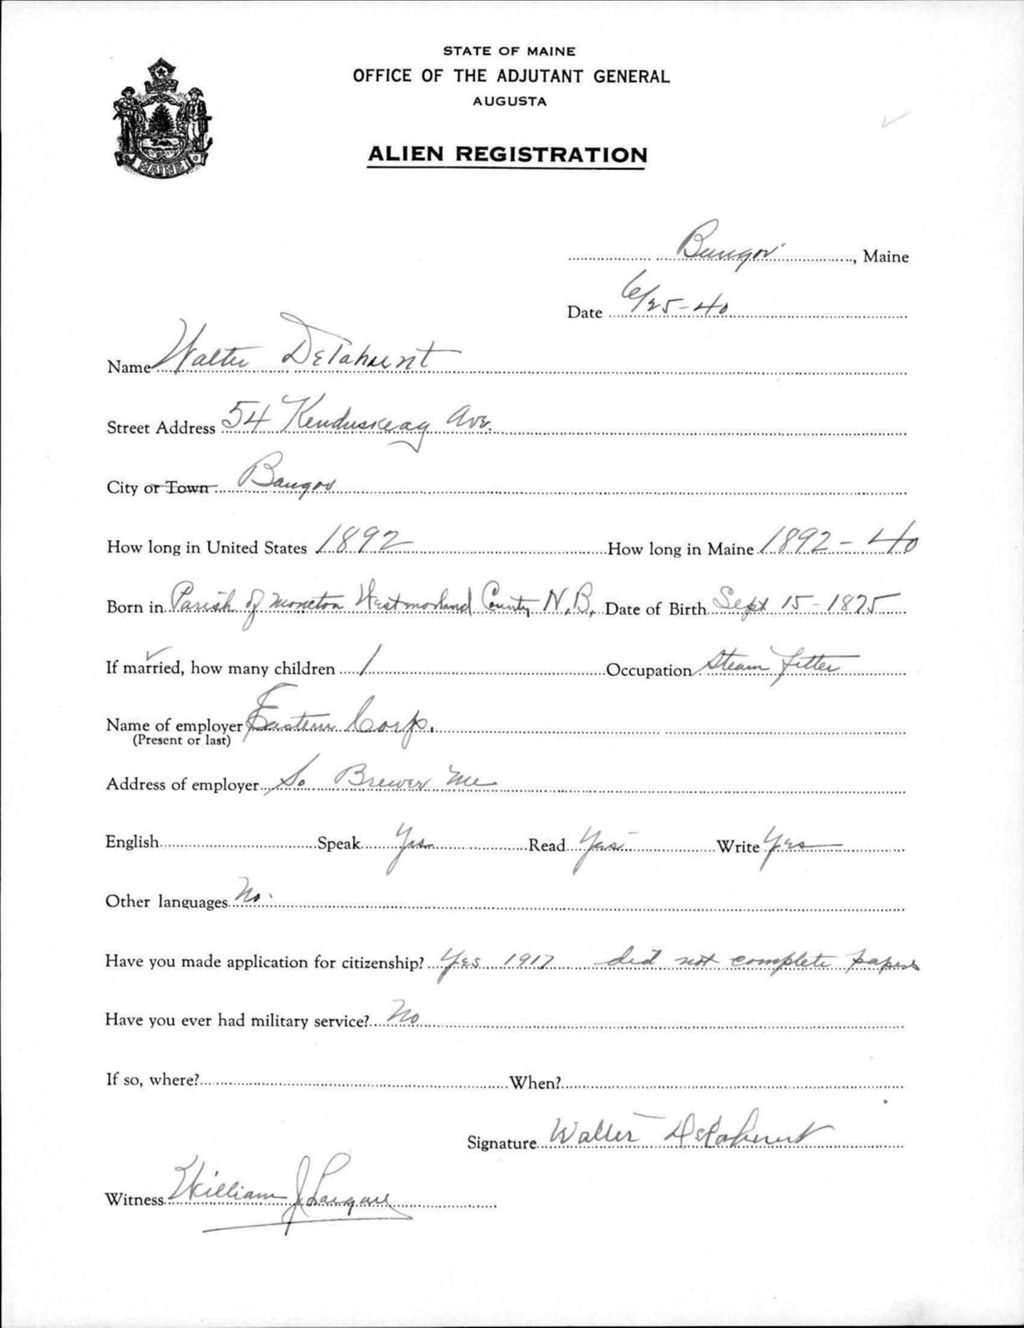 STATE OF MAINE
OFFICE OF THE ADJUTANT GENERAL
AUGUSTA
ALIEN REGISTRATION
MAINE
Bangor, Maine
Date 6/25-40
Name Walter Delahunt
Street Address 54 Kenduskeag Ave.
City or Town Bangor
How long in United States 1892 How long in Maine 1892-40
Born in Parish of Moncton Westmorland County N.B. Date of Birth Sept 15-1875
If married, how many children 1 Occupation Steam fitter
Name of employer Eastern Corp.
(Present or last)
Address of employer So Brewer Me
English Speak Yes Read Yes Write Yes
Other languages No.
Have you made application for citizenship? Yes 1917 did not complete papers
Have you ever had military service? No
If so, where? When?
Signature Walter Delahunt
Witness William J